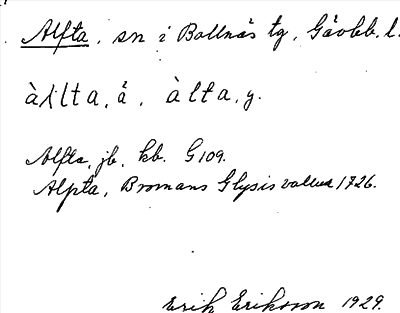 Alfta, sn i Bollnäs tg, Gävleb. l.
àlːlta, å, àlta, y.
Alfta, jb, kb. G 109.
Alpta, Bromans Glysisvallur 1726.
Erik Eriksson 1929.